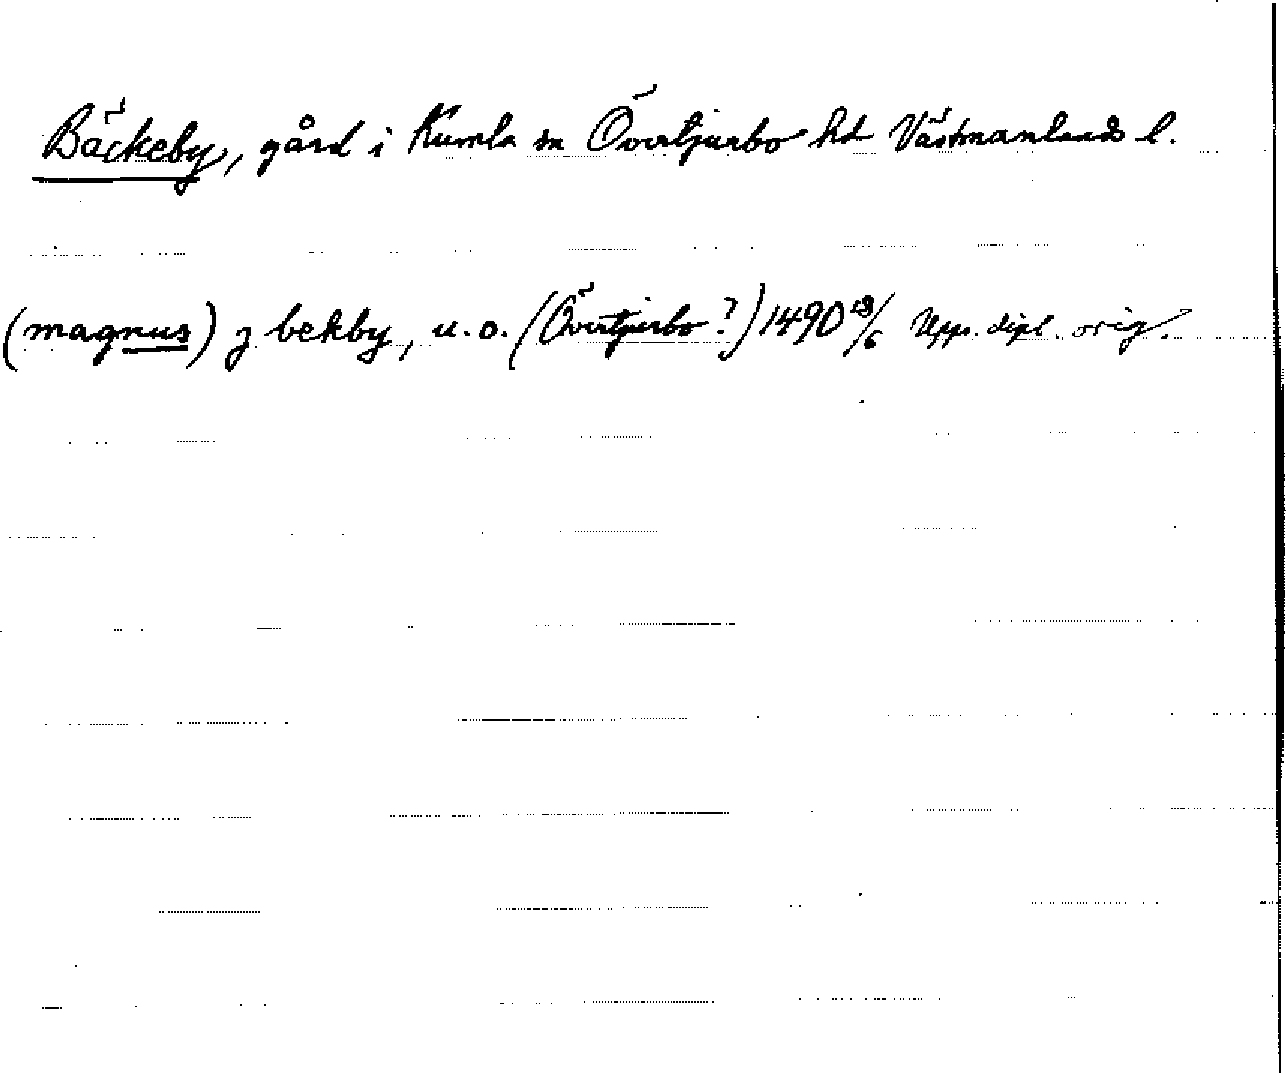 Bäckeby, gård i Kumla sn Övertjurbo hd Västmanlands l.
(magnus) j bekby, u.o. (Övertjurbo?) 1490 /6 Upps. dipl. orig.